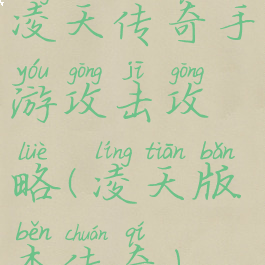 凌天传奇手
yóu gōng jī gōng
游攻击攻
lüè líng tiān bǎn
略(凌天版
běn chuán qí
本传奇)